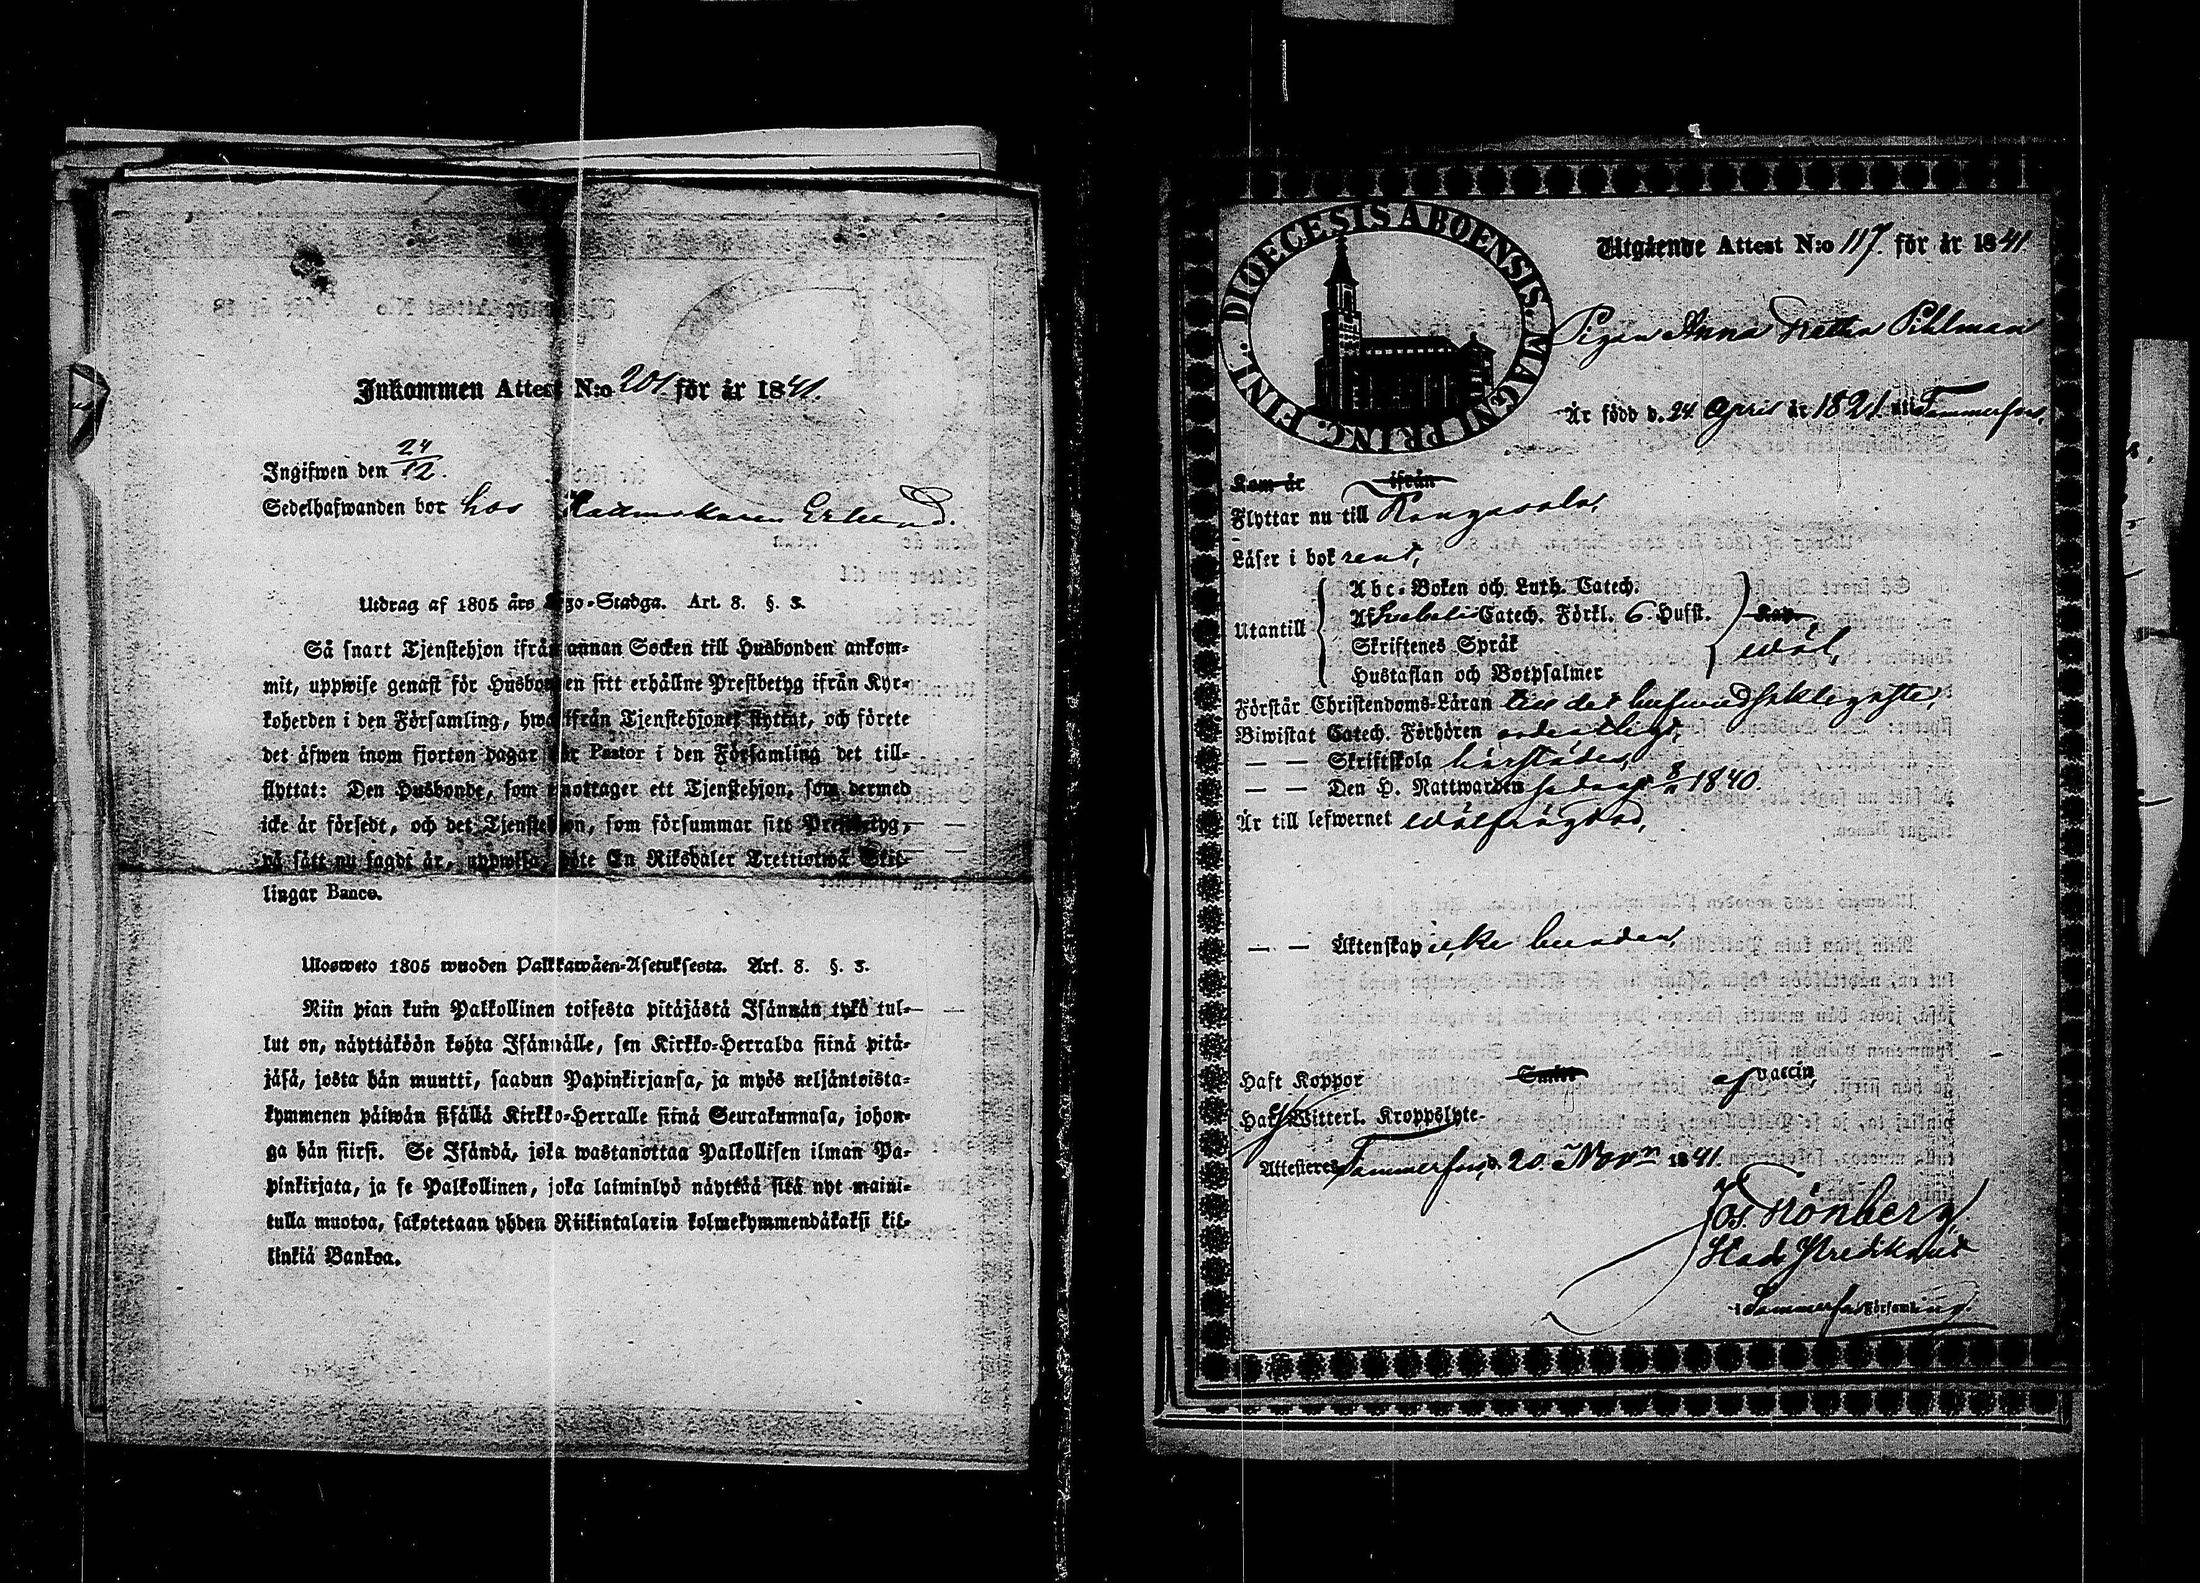 Inkommen Attest N:o 201. för år 1841.
Ingifwen den 24/12.
Sedelhafwanden bor hos Hattmakaren Erlund.
Utdrag af 1805 års Lego-Stadga. Art. 8. §. 3.
Så snart Tjenstehjon ifrån annan Socken till Husbonden ankom-
mit, uppwise genast för Husbonden sitt erhållne Prestbetyg ifrån Kyr-
koherden i den Församling, hwarifrån Tjenstehjonet flyttat, och förete
det äfwen inom fjorton dagar för Pastor i den Församling det till-
flyttat: Den Husbonde, som emottager ett Tjenstehjon, som dermed
icke är försedt, och det Tjenstehjon, som försummar sitt Prestbetyg,
på sätt nu sagdt är, uppwisa, böte En Riksdaler Trettiotwå Skil-
lingar Banco.
Ulosweto 1805 wuoden Palkkawäen-Asetuksesta. Art. 8. §. 3.
Niin pian kuin Palkollinen toisesta pitäjästä Isännän tykö tul-
lut on, näyttäköön kohta Isännälle, sen Kirkko-Herralda siinä pitä-
jäsä, josta hän muutti, saadun Papinkirjansa, ja myös neljäntoista-
kymmenen päiwän sisällä Kirkko-Herralle siinä Seurakunnasa, johon-
ga hän siirsi. Se Isändä, joka wastanottaa Palkollisen ilman Pa-
pinkirjata, ja se Palkollinen, joka laiminlyö näyttää sitä nyt maini-
tulla muotoa, sakotetaan yhden Riikintalarin kolmekymmendäkaksi kil-
linkiä Bankoa.
DIOECESIS ABOENSIS. MAGNI PRINC. FINL.
Utgående Attest N:o 117. för år 1841
Pigan Anna Pihlman
Är född d. 24 April år 1821. i Tammerfors,
Kom år ifrån
Flyttar nu till Kangasala,
Läser i bok rent,
Utantill
Abc-Boken och Luth. Catech.
Af Svebelii Catech. Förkl. 6. Hufst.
Skriftenes Språk
Hustaflan och Botpsalmer
Kap.
wäl,
Förstår Christendoms-Läran till det hufwudsakligaste,
Biwistat Catech. Förhören ordentligt,
— — Skriftskola härstädes,
— — Den H. Nattwarden 1840.
Är till lefwernet wälfrägdad,
— — Äktenskap icke bunden,
Haft Koppor Smitt af vaccin,
Haf Witterl. Kroppslyte
Attesteres Tammerfors, d. 20 Novr 1841.
Jos Grönberg,
Stads Predikant
i Tammerfors Församling.